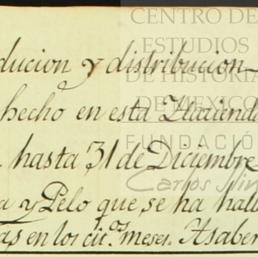 CENTRO DE
ESTUDIOS
DE HISTORIA
DE MEXICO
FUNDACIÓ
Carlos Slim
ducion y distribucion
hecho en esta Haciend
hasta 31 de Diciembre
a y Pelo que se ha hall
as en los cit.os meses. Asaber